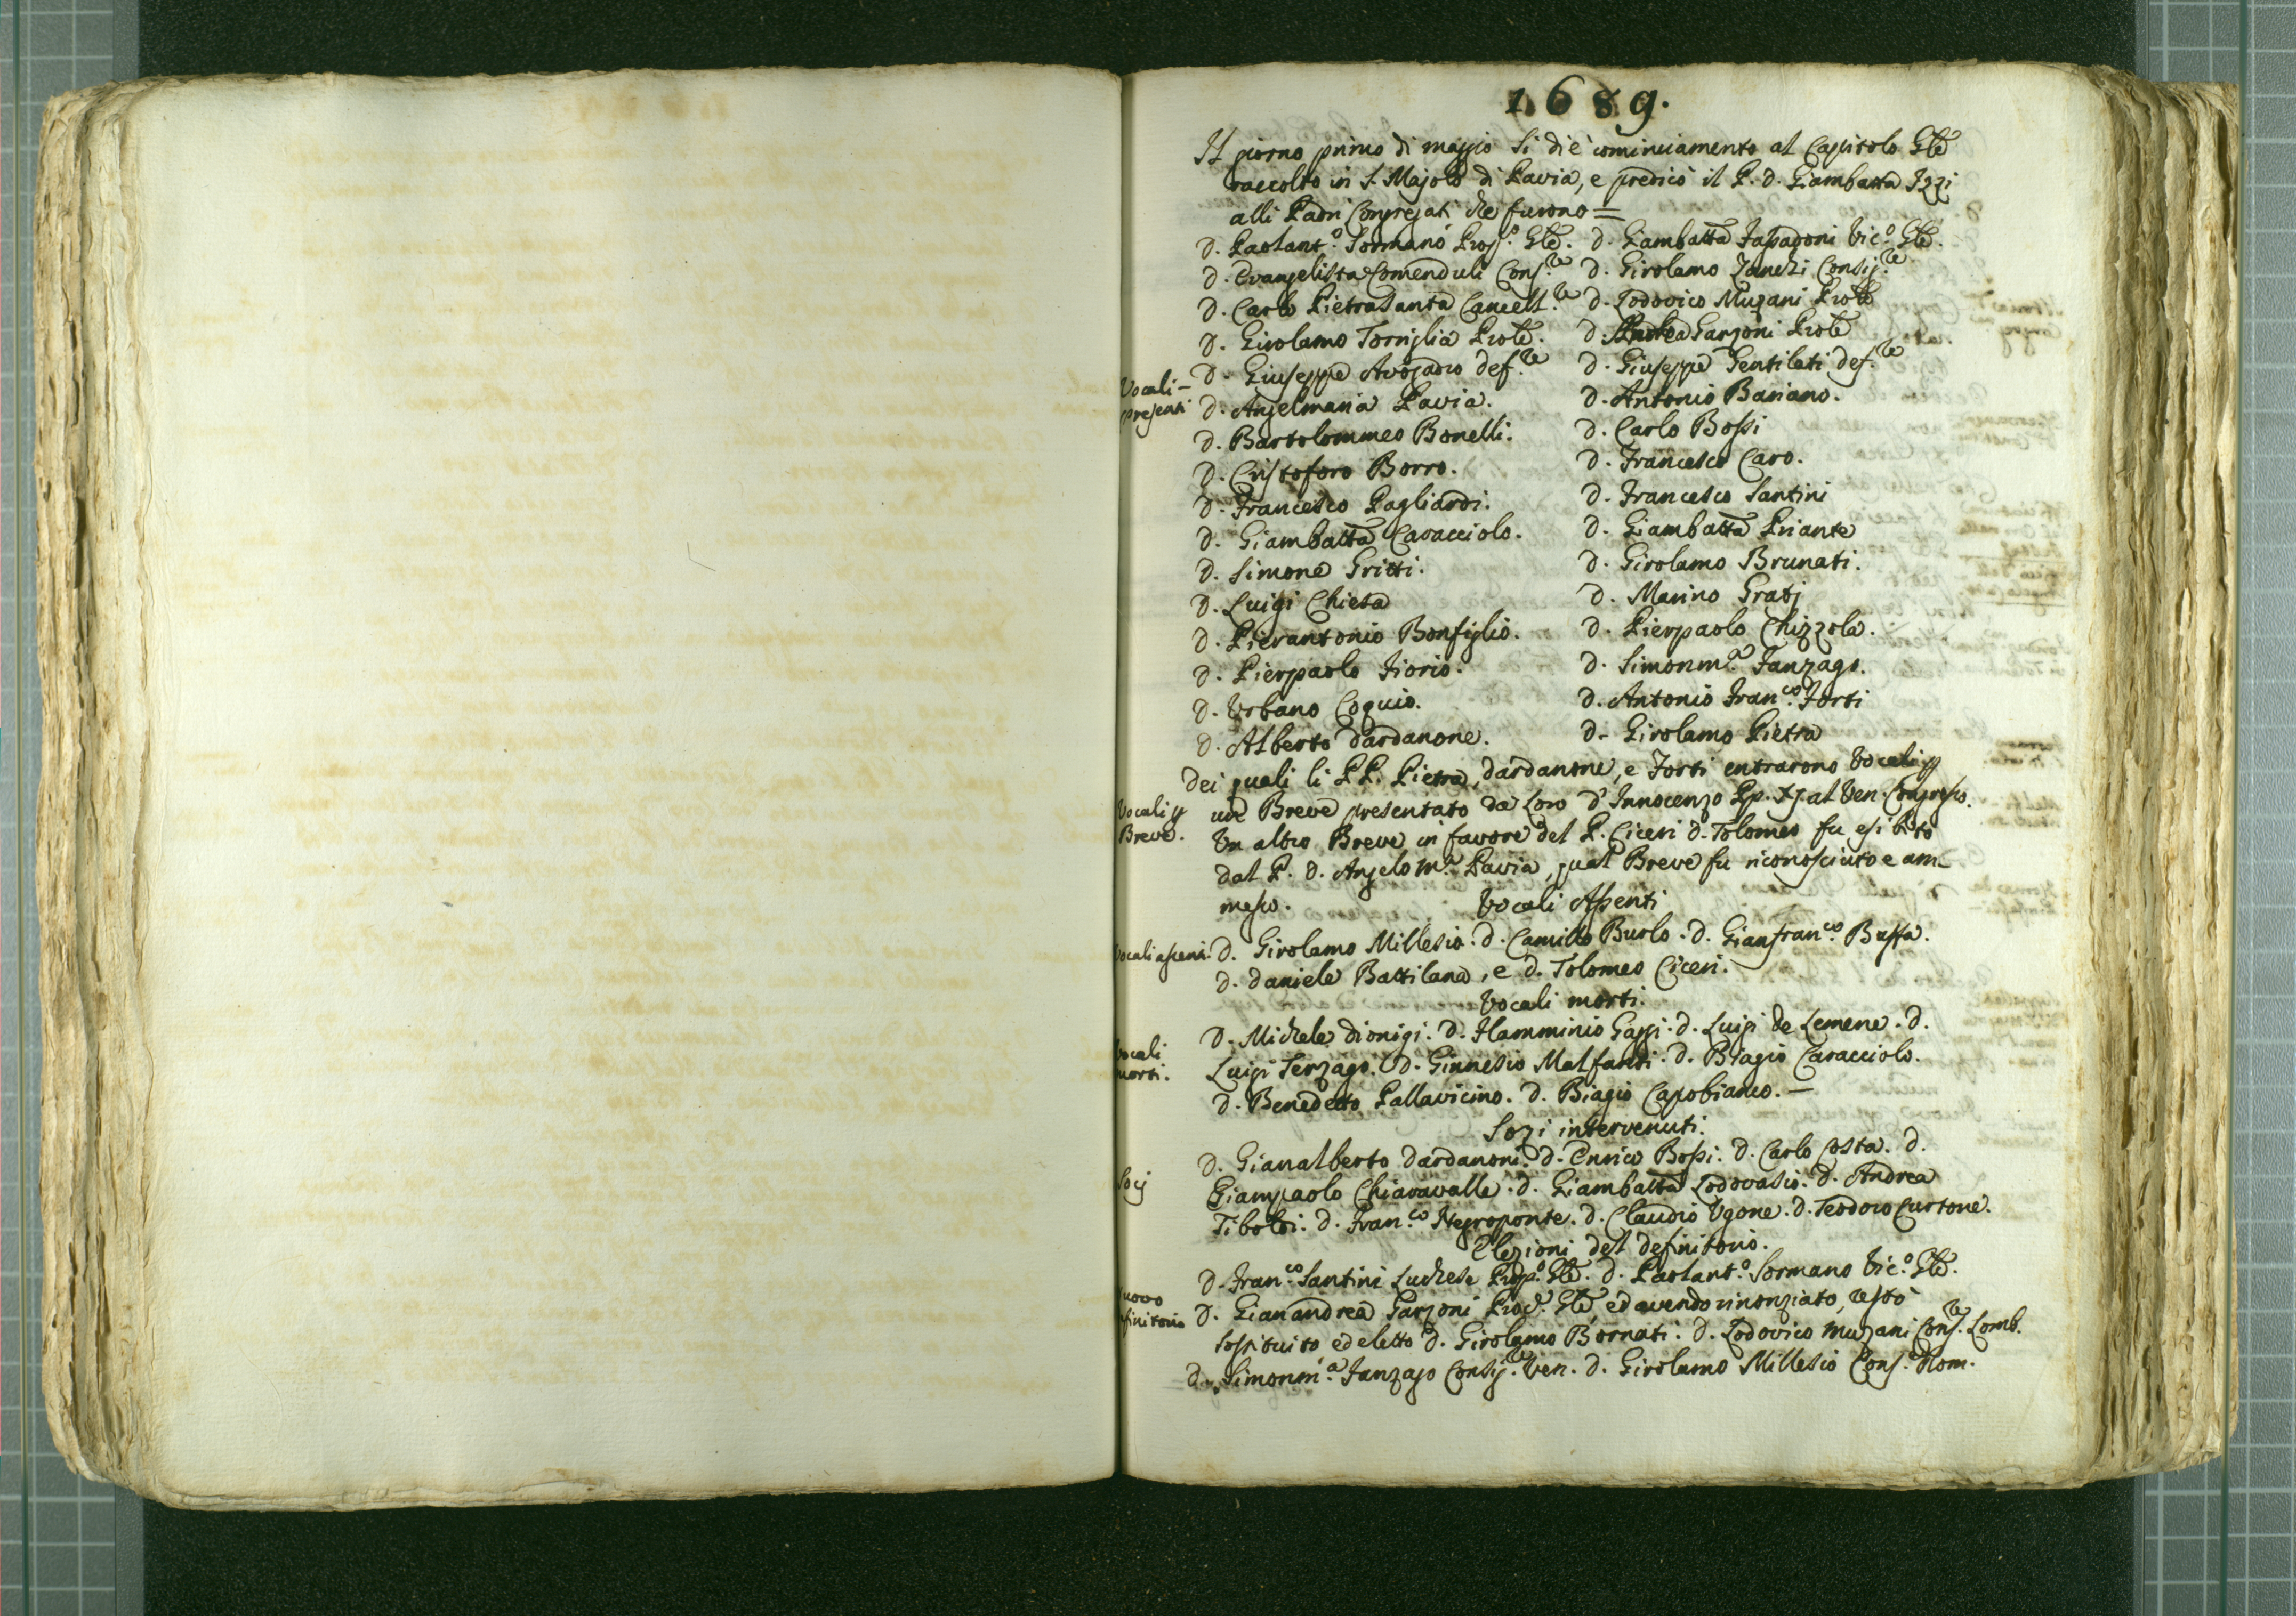 1689.
Il giorno primo di maggio si diè cominciamento al Capitolo Gle
raccolto in S. Majolo di Pavia, e predicò il P. D. Giambatta Izzi
alli Padri Congregati che furono =
D. Paolant.o Sormano Prop.o Gle. D. Giambatta Tapadoni Vic.o Gle.
D. Evangelista Comenduli Cons.re D. Girolamo Zanchi Consig.re
D. Carlo Pietrasanta Cancell.re D. Lodovico Muzani Prole
D. Girolamo Torriglia Prole. D. Andrea Garzoni Prole
Vocali -
presenti
D. Giuseppe Avogadro def.re D. Giuseppe Gentileti def.re
D. Angelmaria Pavia. D. Antonio Bariano.
D. Bartolommeo Bonelli. D. Carlo Bossi
D. Cristoforo Borro. D. Francesco Caro.
D. Francesco Pagliardi. D. Francesco Santini
D. Giambatta Caracciolo. D. Giambatta Priante
D. Simone Gritti. D. Girolamo Brunati.
D. Luigi Chiesa D. Marino Gratj
D. Pierantonio Bonfiglio. D. Pierpaolo Chizzola.
D. Pierpaolo Fiorio. D. Simonm.a Fanzago.
D. Urbano Coquio. D. Antonio Fran.co Forti
D. Alberto Dardanone. D. Girolamo Pietra
Dei quali li PP. Pietra, Dardanone, e Forti entrarono Vocali p
Vocali p
Breve.
un Breve presentato da loro d'Innocenzo Pp. XI al Ven. Congresso.
Un altro Breve in favore del P. Ciceri D. Tolomeo fu esibito
dal P. D. Angelo M.a Pavia, qual Breve fu riconosciuto e am-
messo. Vocali Assenti
Vocali assenti. D. Girolamo Millesio. D. Camillo Burlo. D. Gianfran.co Bussa.
D. Daniele Battilana, e D. Tolomeo Ciceri.
Vocali morti.
Vocali
morti.
D. Michele Dionigi. D. Flamminio Gaggi. D. Luigi de Lemene. D.
Luigi Terzago. D. Ginnesio Malfanti. D. Biagio Caracciolo.
D. Benedetto Pallavicino. D. Biagio Capobianco. -
Sozi intervenuti.
Socj
D. Gianalberto Dardanoni. D. Enrico Bossi. D. Carlo Costa. D.
Giampaolo Chiaravalle. D. Giambatta Lodovasio. D. Andrea
Tiboldi. D. Fran.co Negroponte. D. Claudio Ugone. D. Teodoro Curtone.
Elezioni del definitorio.
D. Fran.co Santini Luchese Prop.o Gle. D. Paolant.o Sormano Vic.o Gle.
nuovo
definitorio
D. Gianandrea Garzoni Proc.r Gle, ed avendo rinonziato, restò
sostituito, ed eletto D. Girolamo Bornati. D. Lodovico Muzani Cons.re Lomb.
D. Simonm.a Fanzago Consig.re Ven. D. Girolamo Millesio Cons.re Rom.